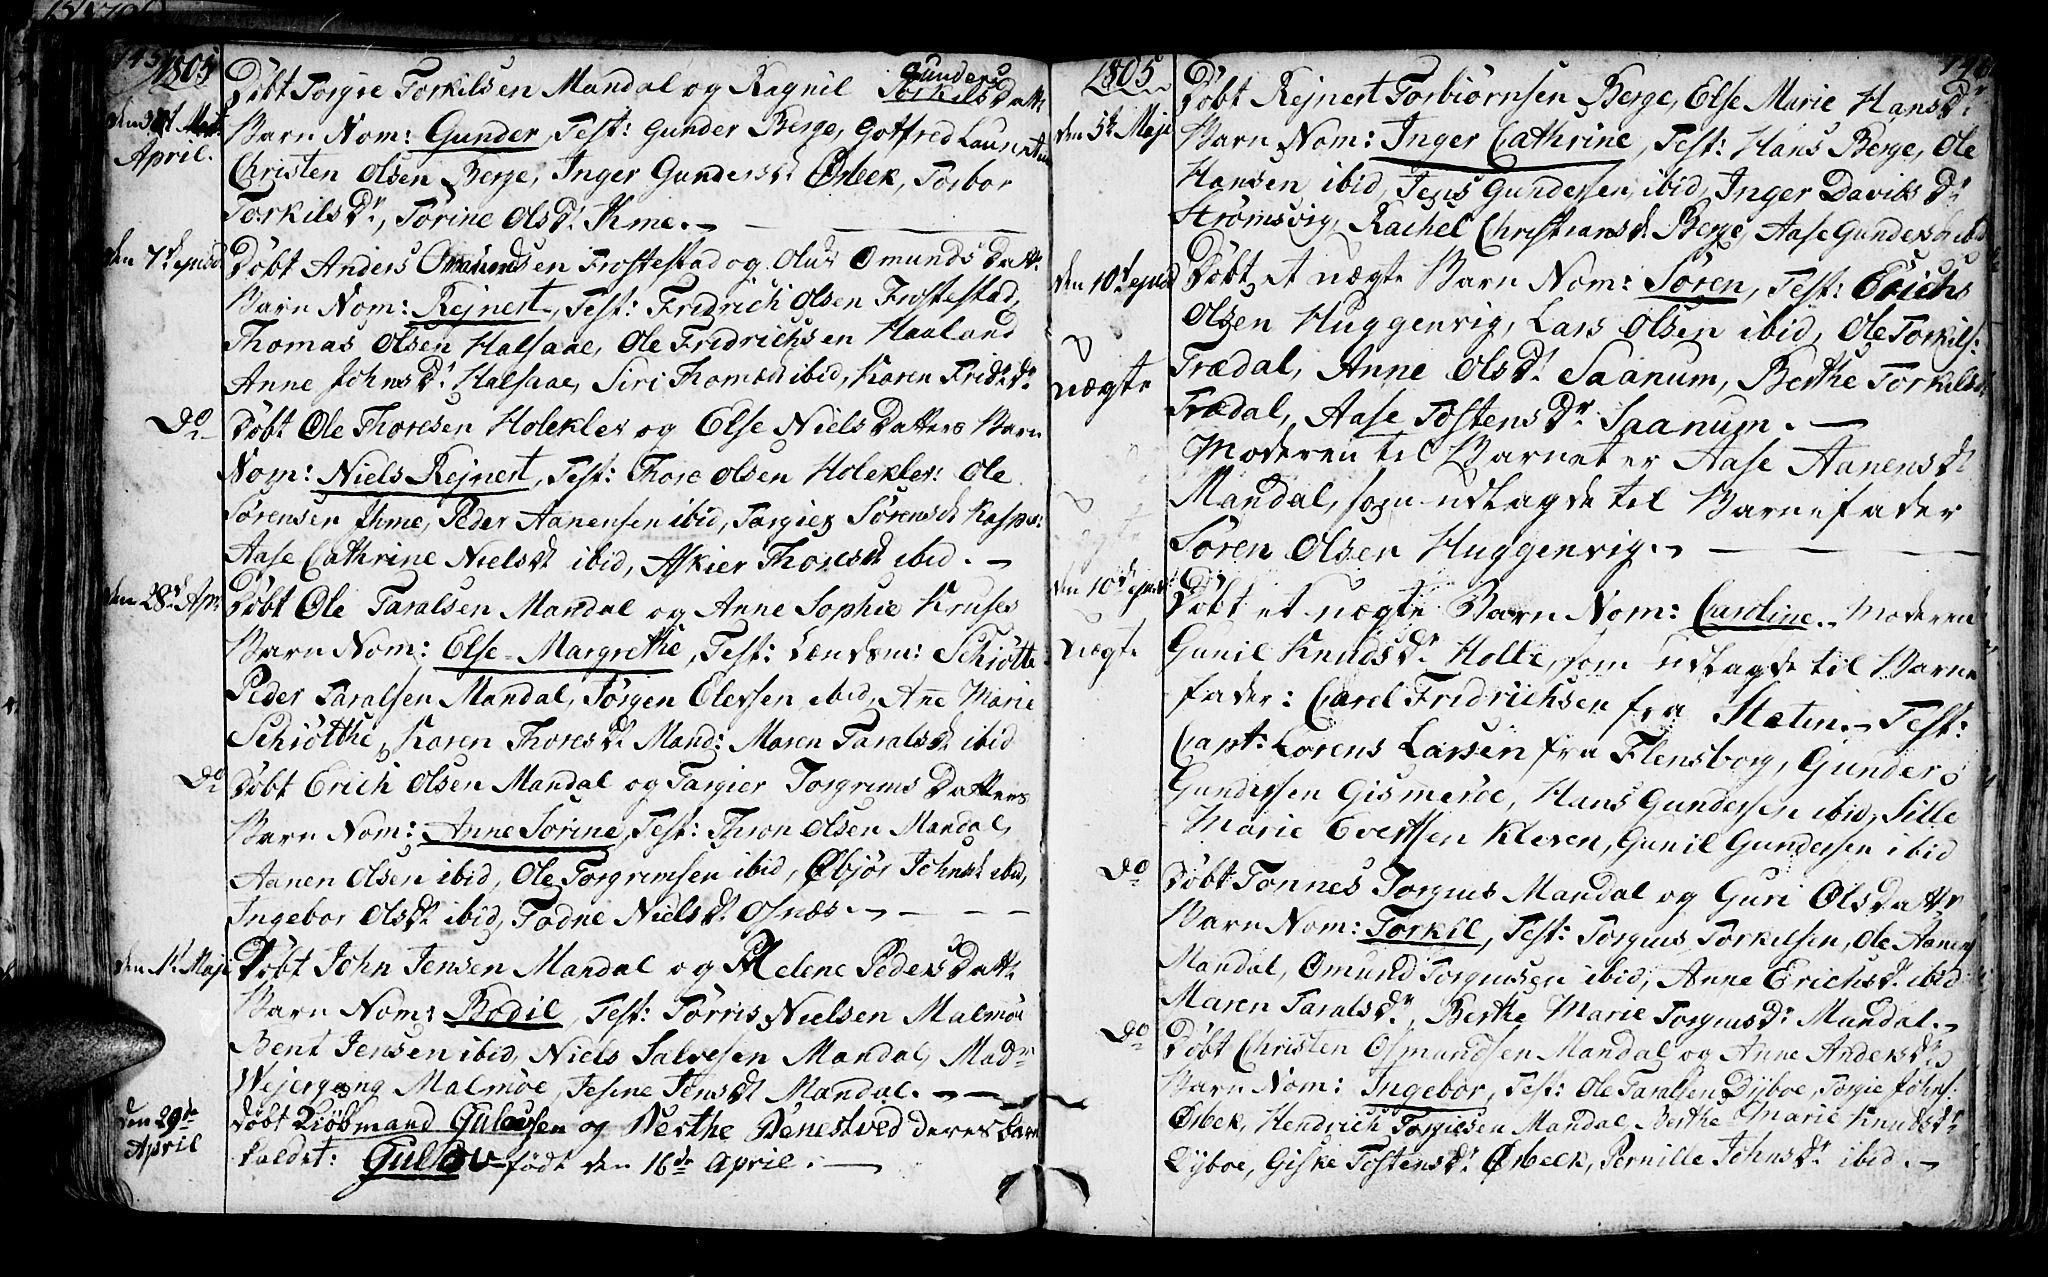 1805
Døbt Torgie Torkilsen Mandal og Ragnil Gunders Torkils Datt:
April.
Barn Nom: Gunder, Test: Gunder Berge, Gotfred
Christen Olsen Berge, Inger Gundersd: Ørbek, Torbor
Torkils Dr, Torine Olsd: Ihme. -
den 7de ejusd
Døbt Anders Omundsen Frostestad og Omunds Datt:
Barn Nom: Rejnert, Test: Fridrich Olsen Frostestad,
Thomas Olsen Halsaae, Ole Fridrichsen Haaland
Anne Johns Dr Halsaae, Siri Thomæd ibid, Karen Fridr: Dr
Do
Døbt Ole Thoresen Holekler og Else Niels Datters Barn
Nom: Niels Rejnert, Test: Thore Olsen Holekler: Ole
Sørensen Ihme, Peder Aanensen ibid, Targier Sørensd:
Aase Cathrine Nielsd: ibid, Askier Thoresd: ibid. -
den 28de Apr:
Døbt Ole Taralsen Mandal og Anne Sophie Kruses
Barn Nom: Else Margrethe, Test: Lændsm: Schiøtte
Peder Taralsen Mandal, Jørgen Elersen ibid, Ane Marie
Schiøtthe, Karen Thoresd: Mand: Maren Taralsd: ibid
Do
Døbt Erich Olsen Mandal og Targier Torgrims Datters
Barn Nom: Anne Sorine, Test: Thron Olsen Mandal,
Aanen Olsen ibid, Ole Torgrimsen ibid, Øbjør Johnsd: ibid,
Ingebor Olsd: ibid, Todne Nielsd: Osnæs. -
den 1te Maje
Døbt John Jensen Mandal og Helene Peders Datt:
Barn Nom: Bodil, Test: Tørris Nielsen Malmøe
Bent Jensen ibid, Niels Salvesen Mandal, Madr
Wejergang Malmøe, Jesine Jensd: Mandal. -
den 29de
April
døbt Kiøbmand Gulovsen og Berthe Benestved deres barn
kaldet: Gulov født den 16de April. -
1805
Døbt Rejnert Torbiørnsen Berge, Else Marie Hans Dr
den 5te Maje
Barn Nom: Inger Cathrine, Test: Hans Berge, Ole
Hansen ibid, Jens Gundersen ibid, Inger Davids Dr
Strømsvig, Rachel Christiansd: Berge, Aase Gundersd: ibid
den 10de ejusd
Døbt et uægte Barn Nom: Søren, Test: Erich
Olsen Huggenvig, Lars Olsen ibid, Ole Torkils:
uægte
Trædal, Anne Olsd: Saanum, Berthe Torkilsd:
Trædal, Aase Tostens Dr Saanum. -
Moderen til Barnet er Aase Aanensd:
Mandal, som udlagde til Barnefader
Søren Olsen Huggenvig. -
den 10de ejusd:
Døbt et uægte Barn Nom: Caroline. - Moderen
uægte
Gunil Knuds Dr Holte, som udlagde til Barne
fader: Carel Fridrichsen fra Stætin. - Test:
Capt: Lorens Larsen fra Flensborg, Gunder
Gundersen Gismerøe, Hans Gundersen ibid, Sille
Marie Evertsen Kleven, Gunil Gundersen ibid
Do
Døbt Tønnes Torgius Mandal og Guri Ols Dattr
Barn Nom: Torkil, Test: Torgius Torkilsen, Ole Aanens
Mandal, Omund Torgiusen ibid, Anne Erichsd: ibid
Maren Tarals Dr, Berthe Marie Torgiusd: Mandal. -
Do
Døbt Christen Osmundsen Mandal og Anne Anders Dr
Barn Nom: Ingebor, Test: Ole Taralsen Dyboe, Torgie Johns:
Ørbek, Hendrich Torgiesen Mandal, Berthe Marie Knudsd:
Dyboe, Giske Tostens Dr Ørbeck, Pernille Johns Dr ibid. -